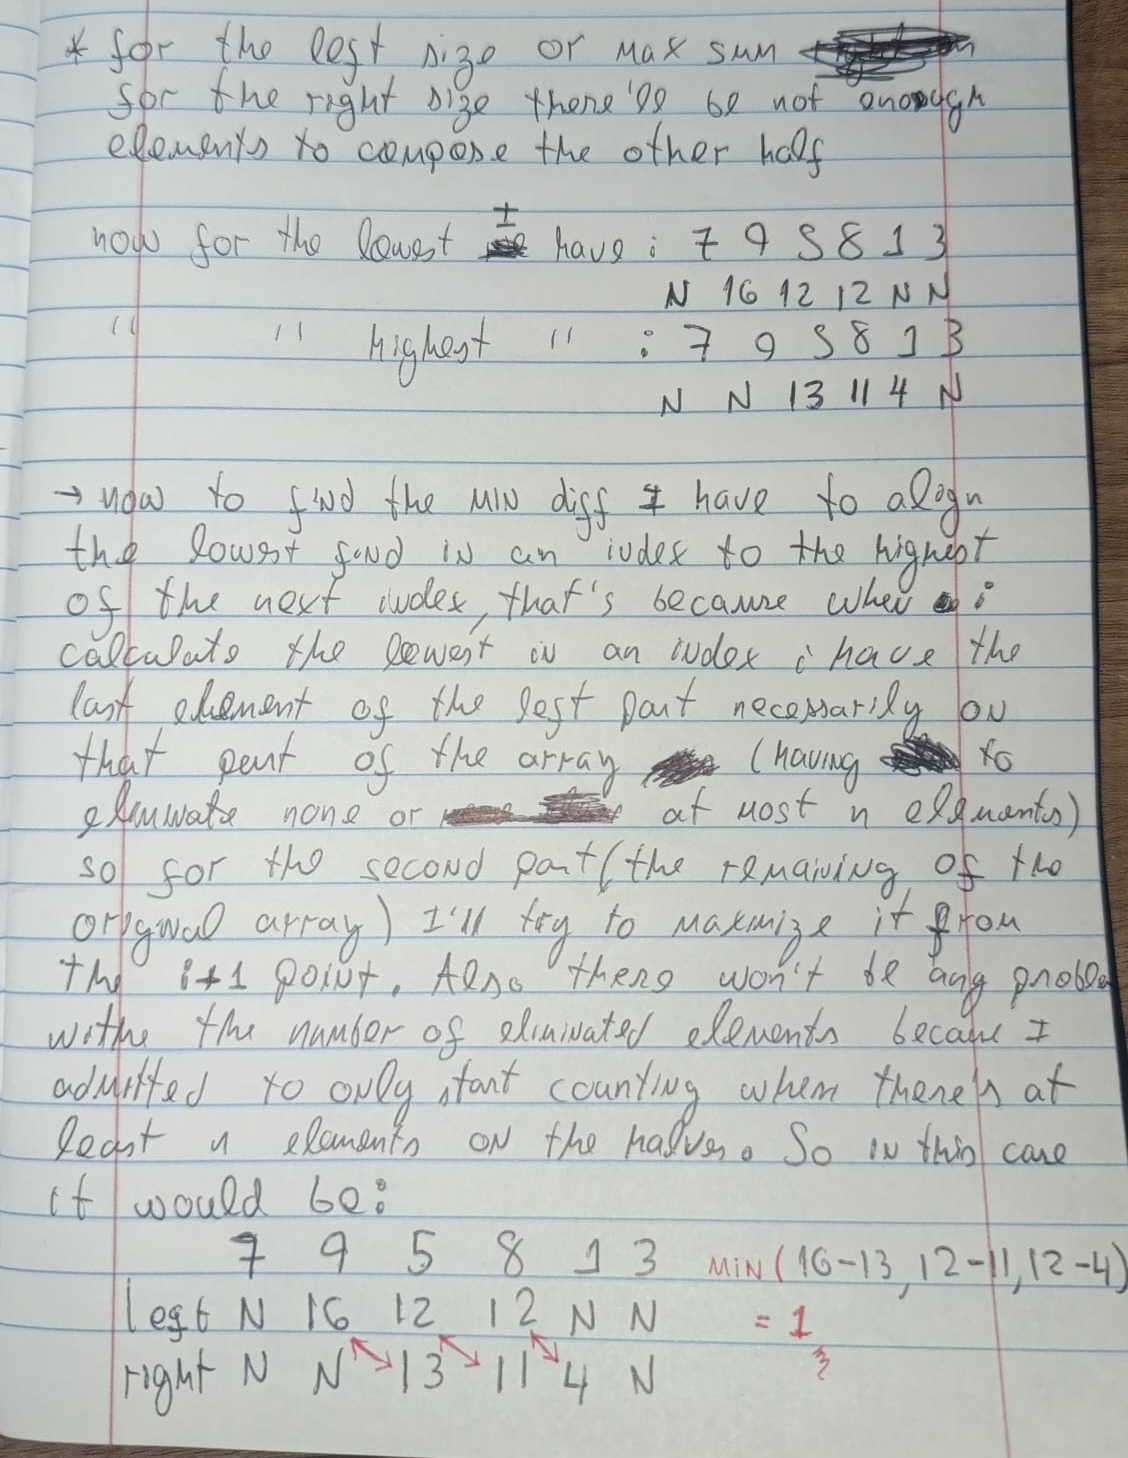 * for the left size or max sum
for the right size there'll be not enough
elements to compose the other half
now for the lowest I have : 7 9 5 8 1 3
N 16 12 12 N N
" " highest " : 7 9 5 8 1 3
N N 13 11 4 N
→ now to find the MIN diff I have to align
the lowest find in an index to the highest
of the next index, that's because when i
calculate the lowest in an index i have the
last element of the left part necessarily on
that part of the array (having to
eliminate none or at most n elements)
so for the second part (the remaining of the
original array) I'll try to maximize it from
the i+1 point. Also there won't be any problem
withe the number of eliminated elements because I
admitted to only start counting when there's at
least n elements on the halves. So in this case
it would be:
7 9 5 8 1 3 MIN (16-13, 12-11, 12-4)
left N 16 12 12 N N = 1
right N N 13 11 4 N